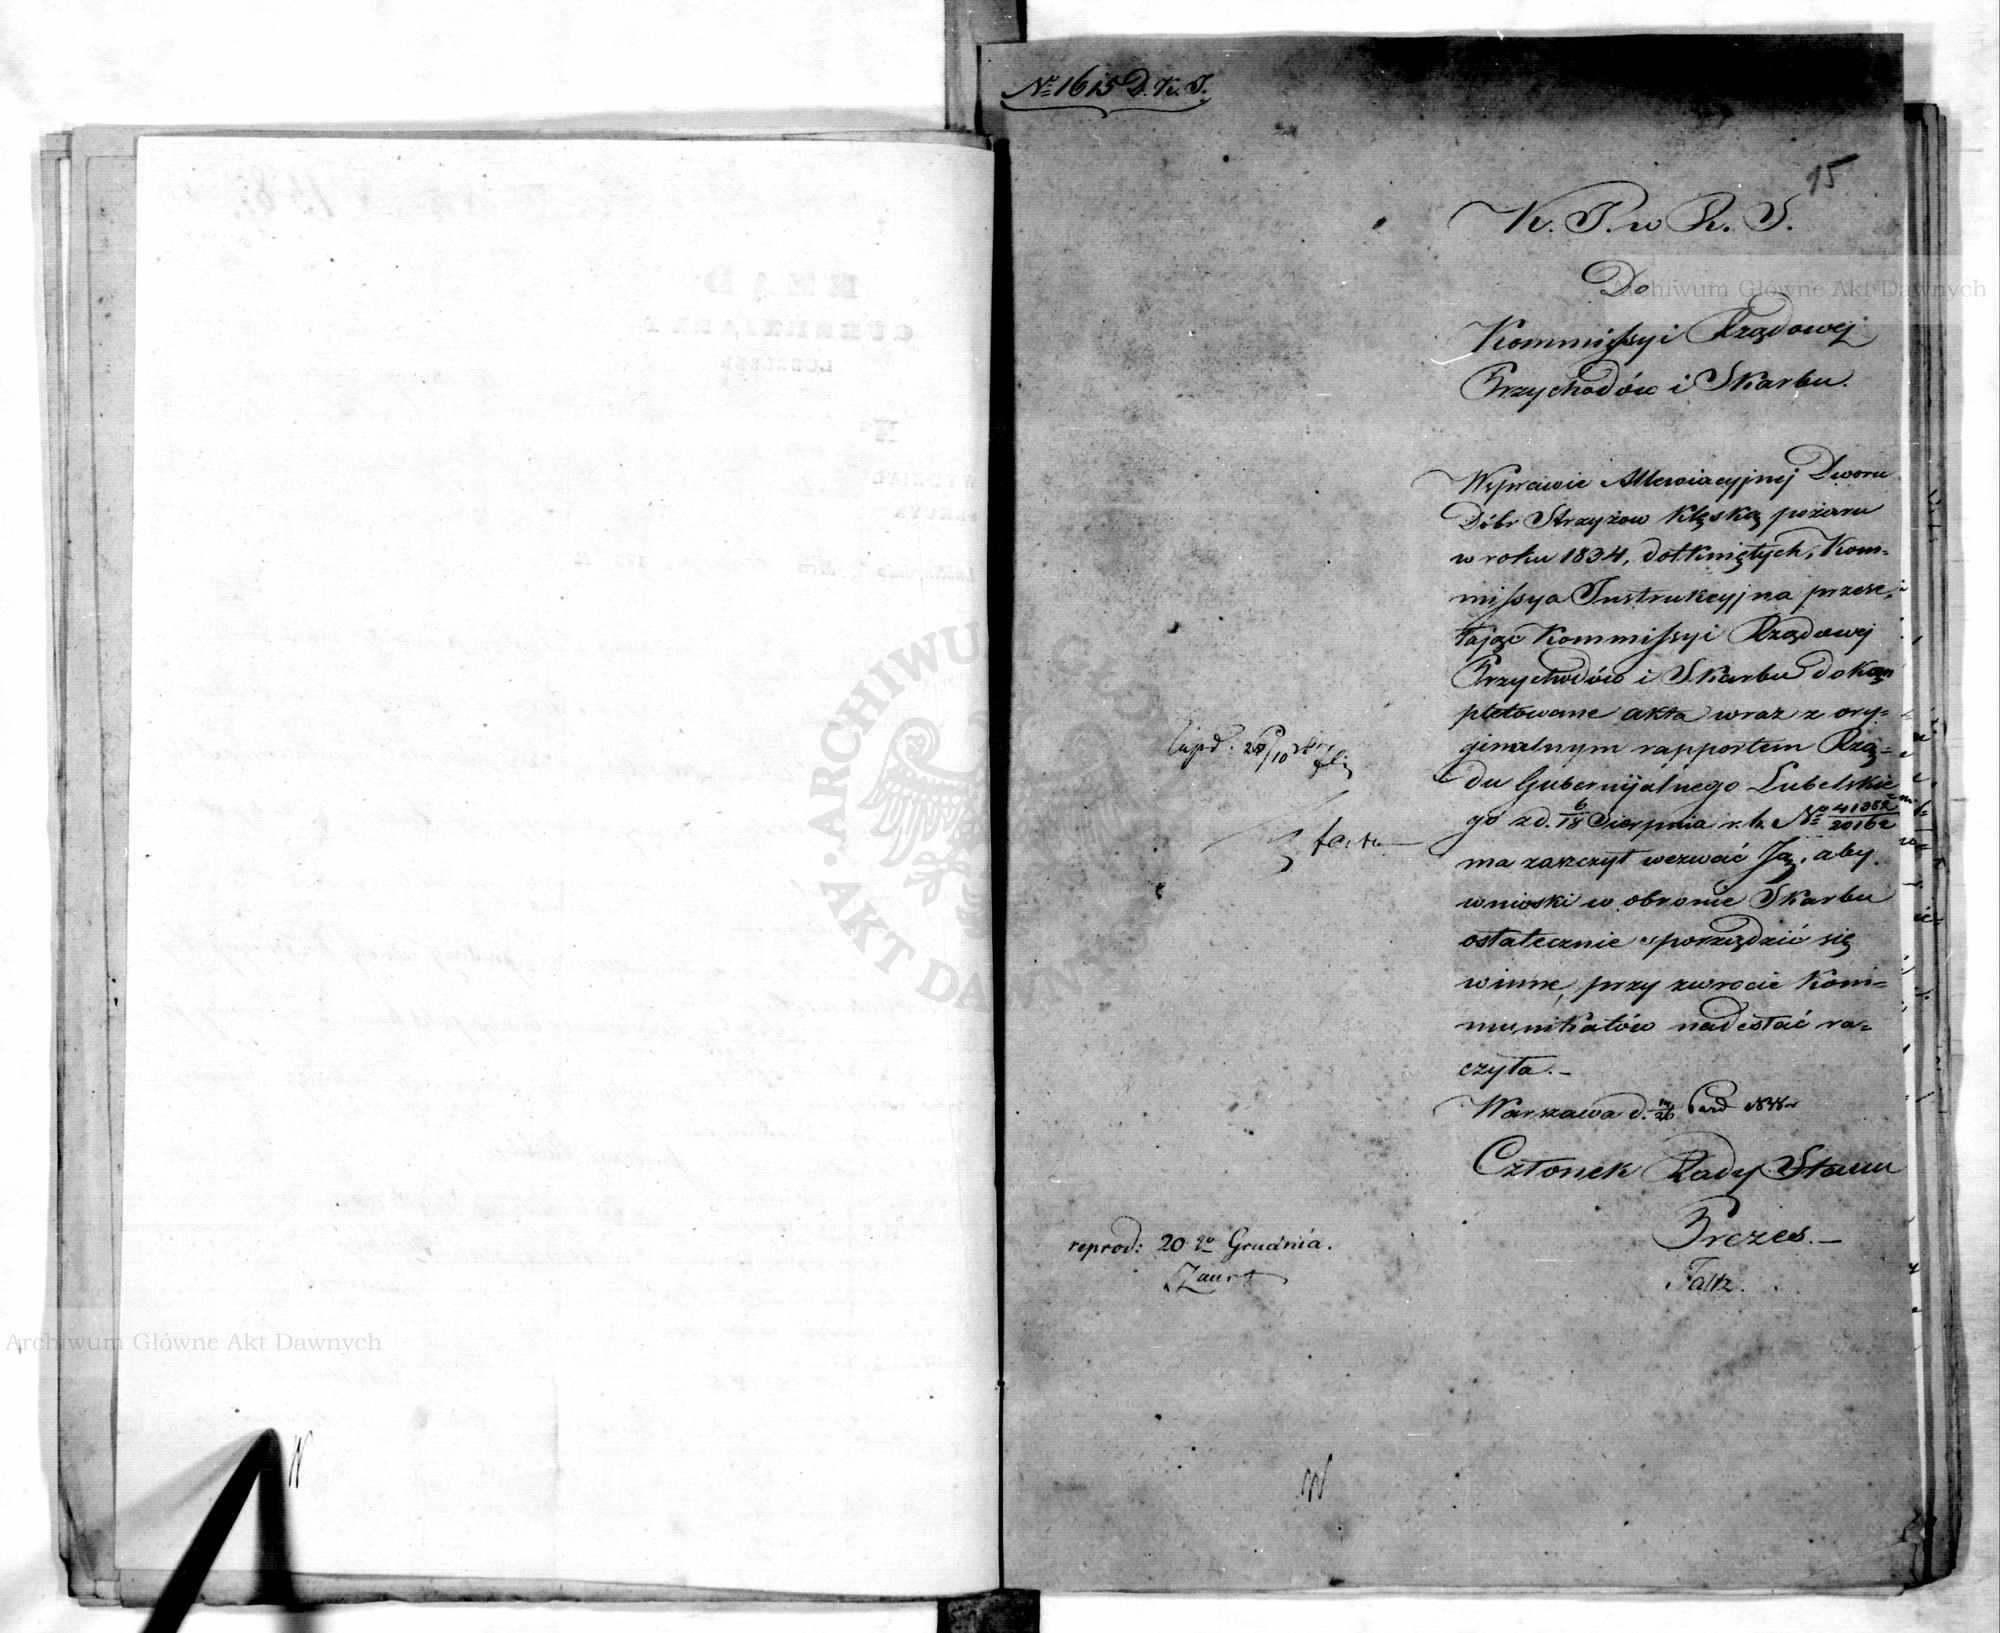 № 1615 D. K. I.
15
K. I. w K. S.
Do
Kommissyi Rządowej
Przychodów i Skarbu.
W sprawie Allewiacyjnej Dworu
Dóbr Strzyżow klęską pożaru
w roku 1834, dotkniętych, Kom-
missya Instrukcyjna przese-
łając Kommissyi Rządowej
Przychodów i Skarbu dokom
pletowane akta wraz z ory-
ginalnym rapportem Rzą-
du Gubernijalnego Lubelskie
go z d. 6/18 Sierpnia r. b. № 41382/20162
ma zaszczyt wezwać Ją, aby
wnioski w obronie Skarbu
ostatecznie sporządzić się
winne, przy zwrocie Kom-
munikatów nadesłać ra-
czyła.-
Warszawa d. /26 Paźd
Członek Rady Stanu
Prezes.-
Faltz.
reprod: 20 go Grudnia.
ARCHIWUM GŁÓWNE AKT DAWNYCH
Archiwum Główne Akt Dawnych
Archiwum Główne Akt Dawnych